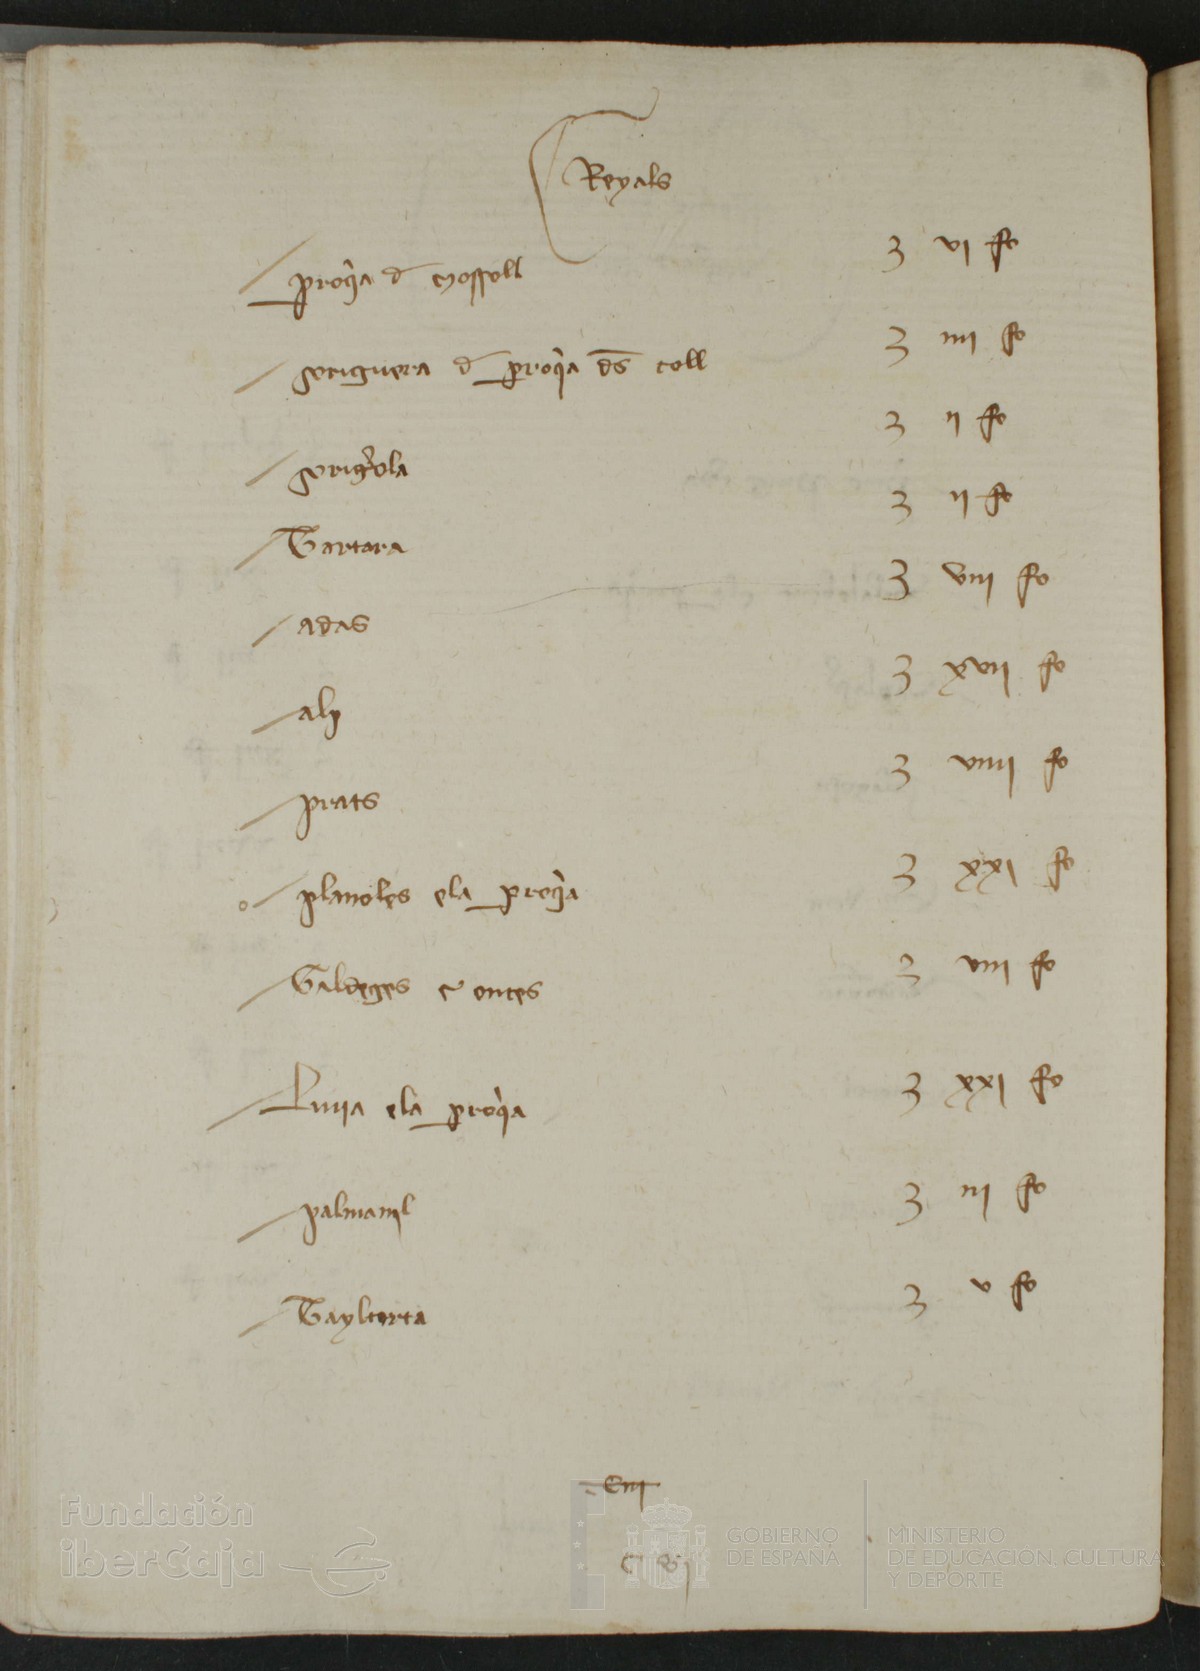 Reyals
proq̃a d mossoll ʒ vi fo
soriguera d proq̃a ds̄ coll ʒ iiii fo
sorigrola ʒ ij fo
Tartara ʒ ij fo
adas ʒ viii fo
alp ʒ xvij fo
prats ʒ viiij fo
planoles ela proq̃a ʒ xxi fo
Galdeges e onçes ʒ viii fo
Liuia ela proq̃a ʒ xxi fo
palmanil ʒ iij fo
Tayltorta ʒ v fo
Ciiij
C vj
Fundación
iberCaja
GOBIERNO
DE ESPAÑA
MINISTERIO
DE EDUCACIÓN, CULTURA
Y DEPORTE